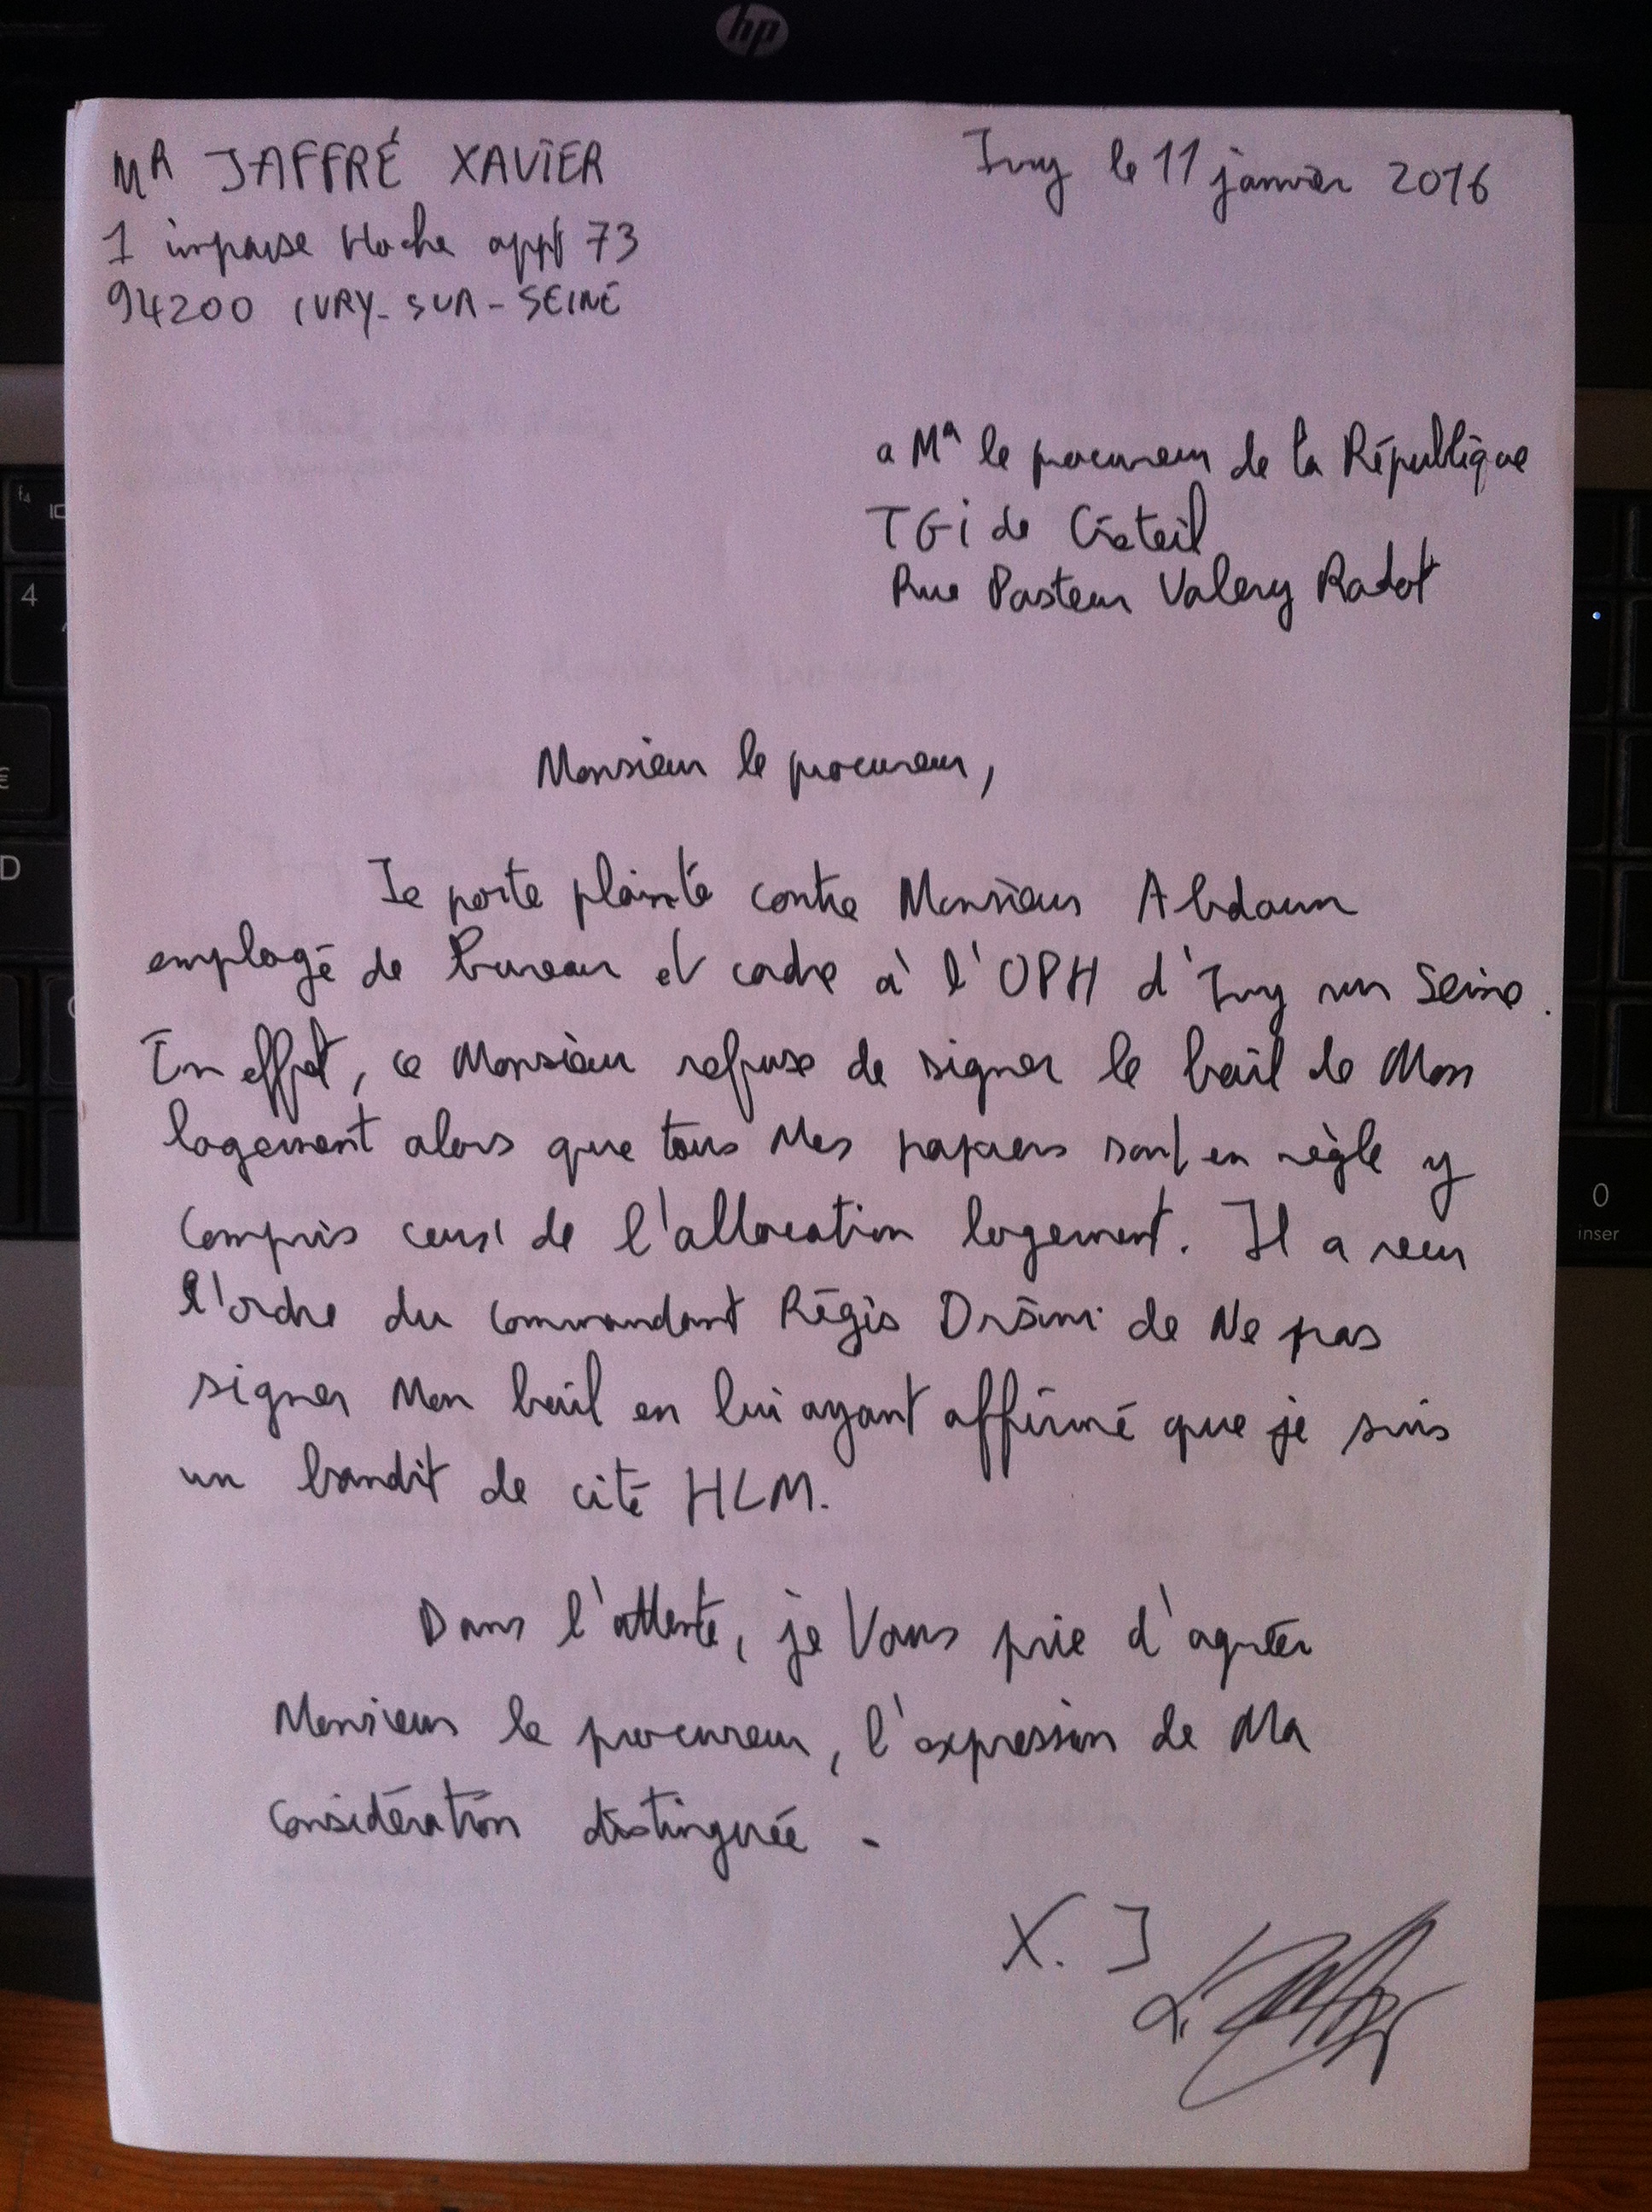 hp
MR JAFFRÉ XAVIER
Ivry le 11 janvier 2016
1 impasse Hoche appt 73
94200 IVRY-SUR-SEINE
a Mr le procureur de la République
TGi de Créteil
Rue Pasteur Valery Radot
Monsieur le procureur,
Je porte plainte contre Monsieur Abdoun
employé de bureau et cadre à l'OPH d'Ivry sur Seine.
En effet, ce Monsieur refuse de signer le bail de Mon
logement alors que tous Mes papiers sont en règle y
compris ceux de l'allocation logement. Il a reçu
l'ordre du commandant Régis de Ne pas
signer Mon bail en lui ayant affirmé que je suis
un bandit de cité HLM.
Dans l'attente, je Vous prie d'agréer
Monsieur le procureur, l'expression de Ma
considération distinguée.
X. J
f4
4
€
D
0
inser